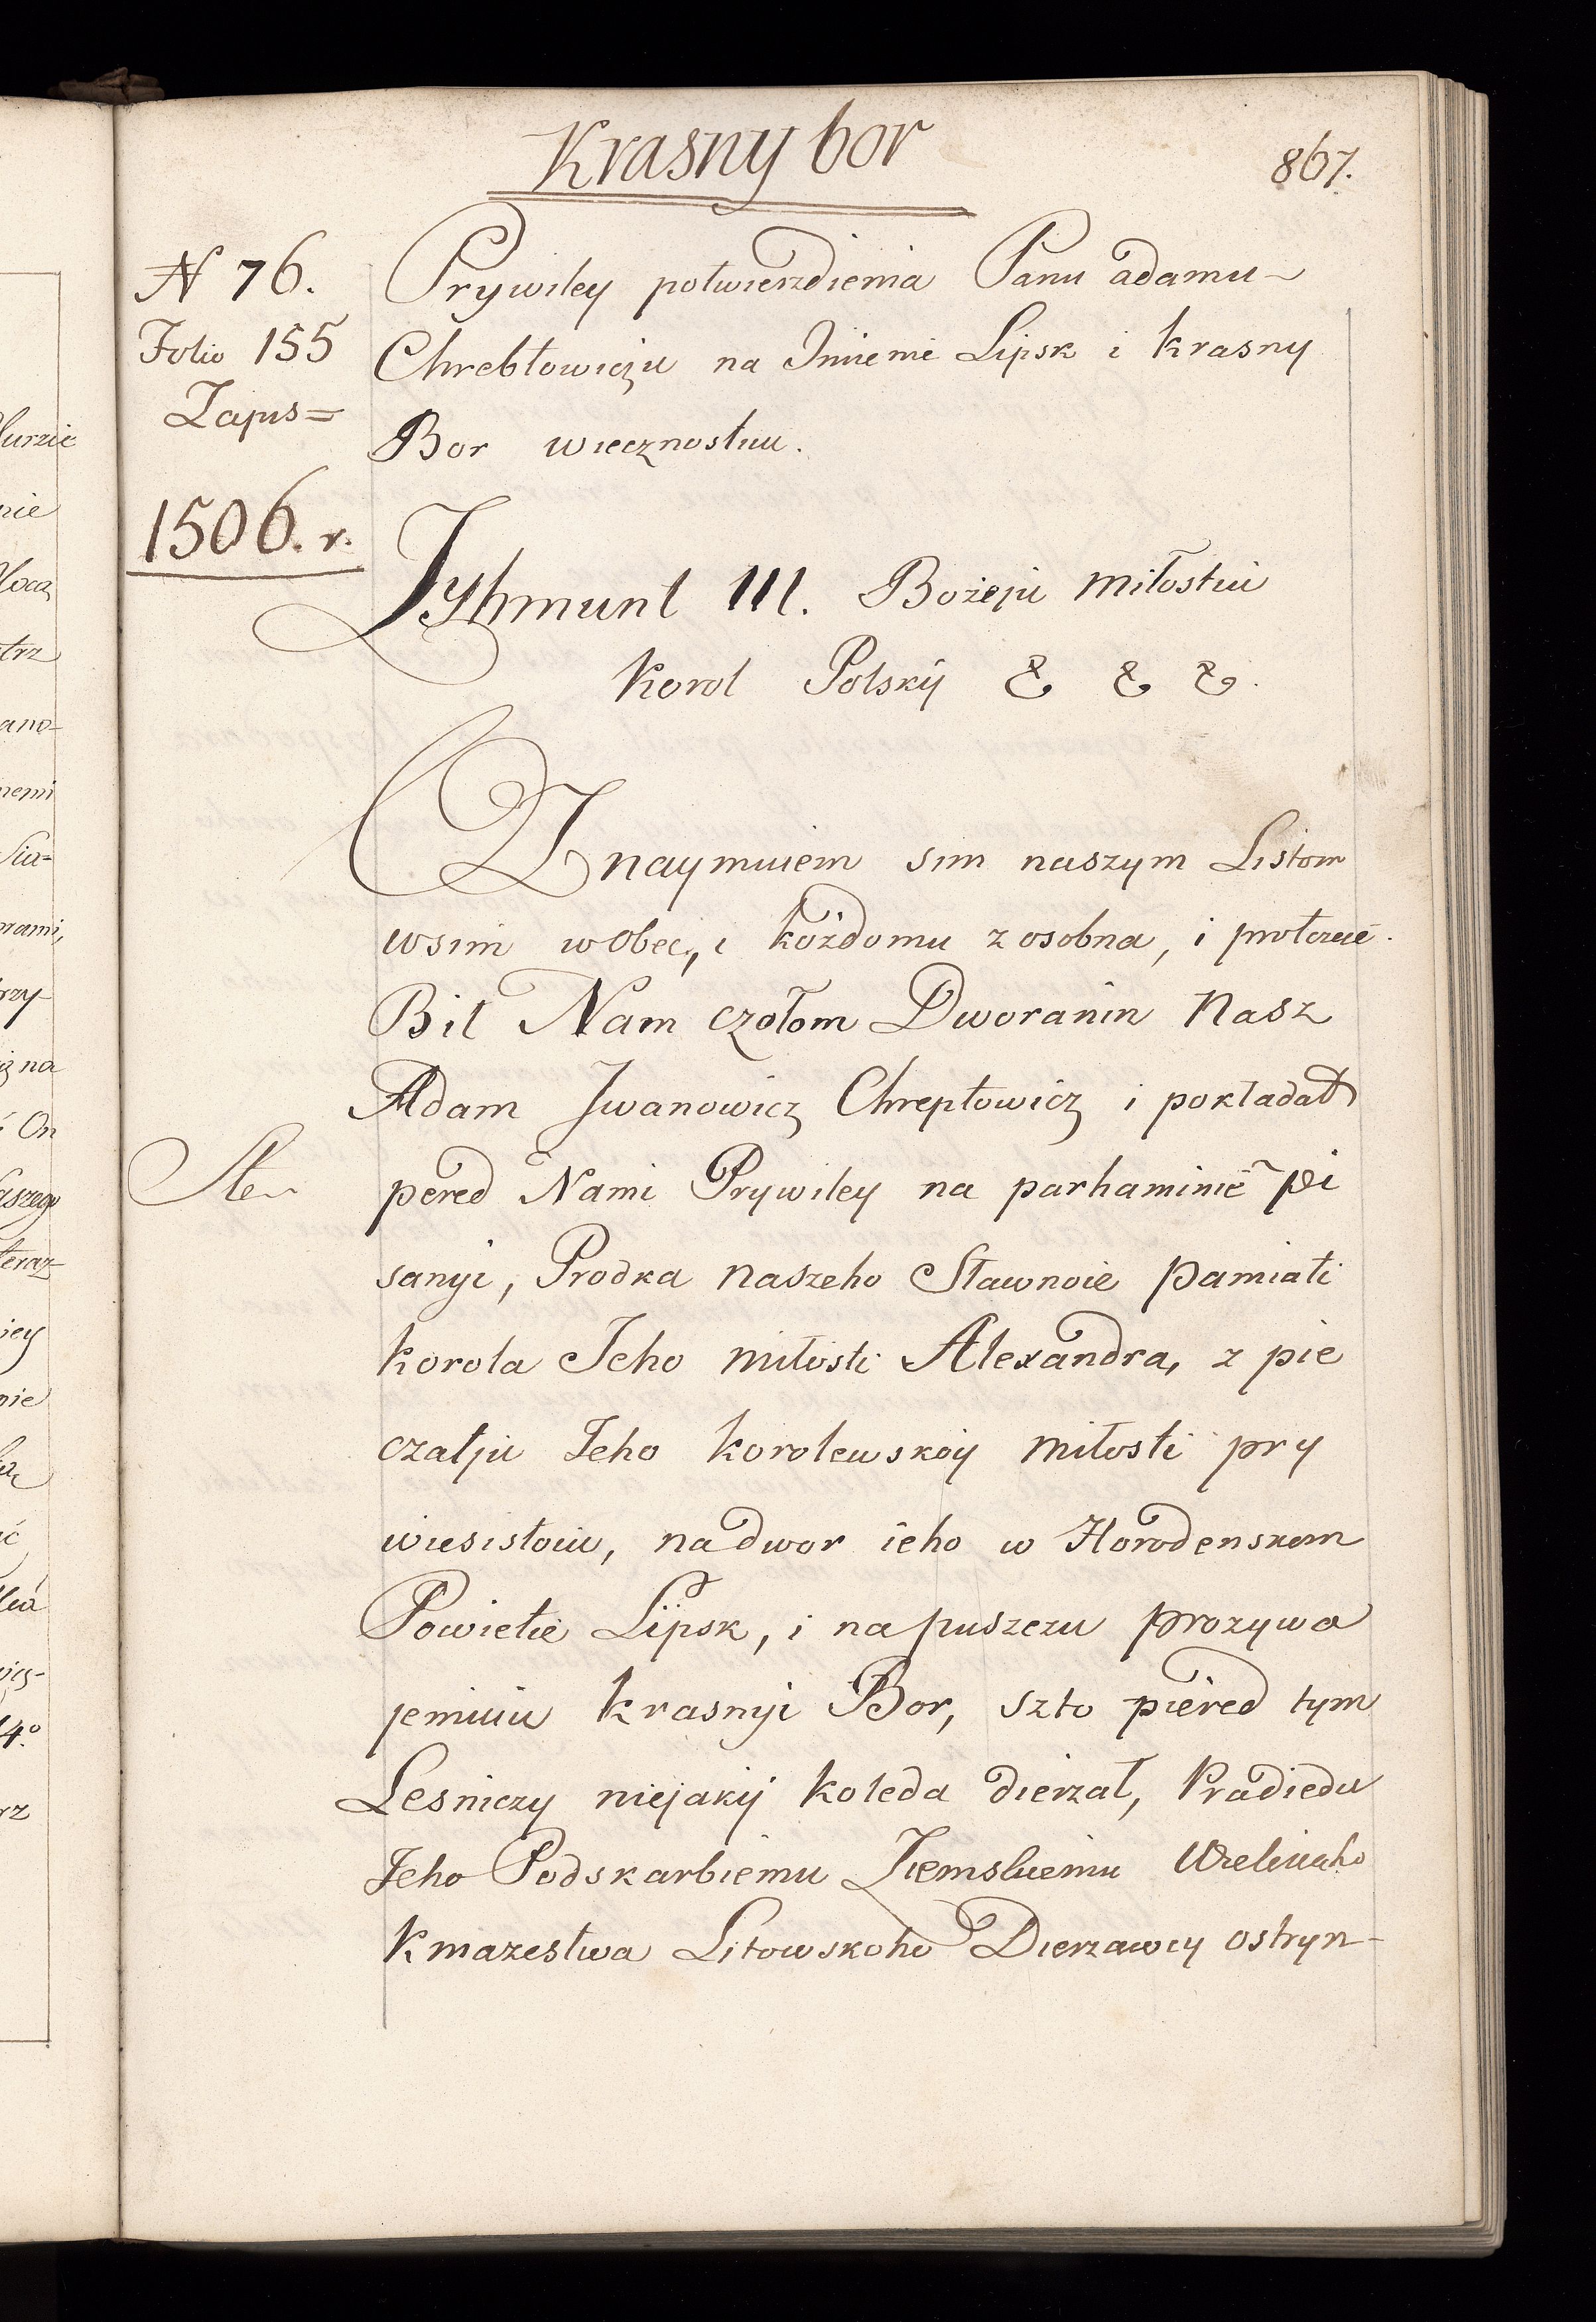 Krasny bor
867.
N 76.
Folio 155
Zapis=
1506. r.
Prywiley potwierzdienia Panu adamu
Chrebtowiczu na Imienie Lipsk i krasny
Bor wiecznostiu.
Zyhmunt III. Bożeju miłostiu
Korol Polskij & & &.
Znaymuiem sim naszym Listom
wsim wobec, i kożdomu z osobna, i
Bil Nam czołom Dworanin Nasz
Adam Iwanowicz Chreptowicz i pokładał
pered Nami Prywiley na parhaminie pi
sanyi, Prodka naszeho Sławnoie pamiati
korola Jeho miłosti Alexandra, z pie
czatju Jeho korolewskoy miłosti pry
wiesistoiu, na dwor ieho w Horodenskom
Powietie Lipsk, i na puszczu prozywa
jemuiu krasnyi Bor, szto piered tym
Lesniczy niejakij Koleda dierzał, Pradiedu
Jeho Podskarbiemu Ziemskiemu Wielikaho
Kniazestwa Litowskoho Dierzawcy ostryn-
nie
trz
ano-
nemi
Sia=
rzy
On
iey
nie
rz